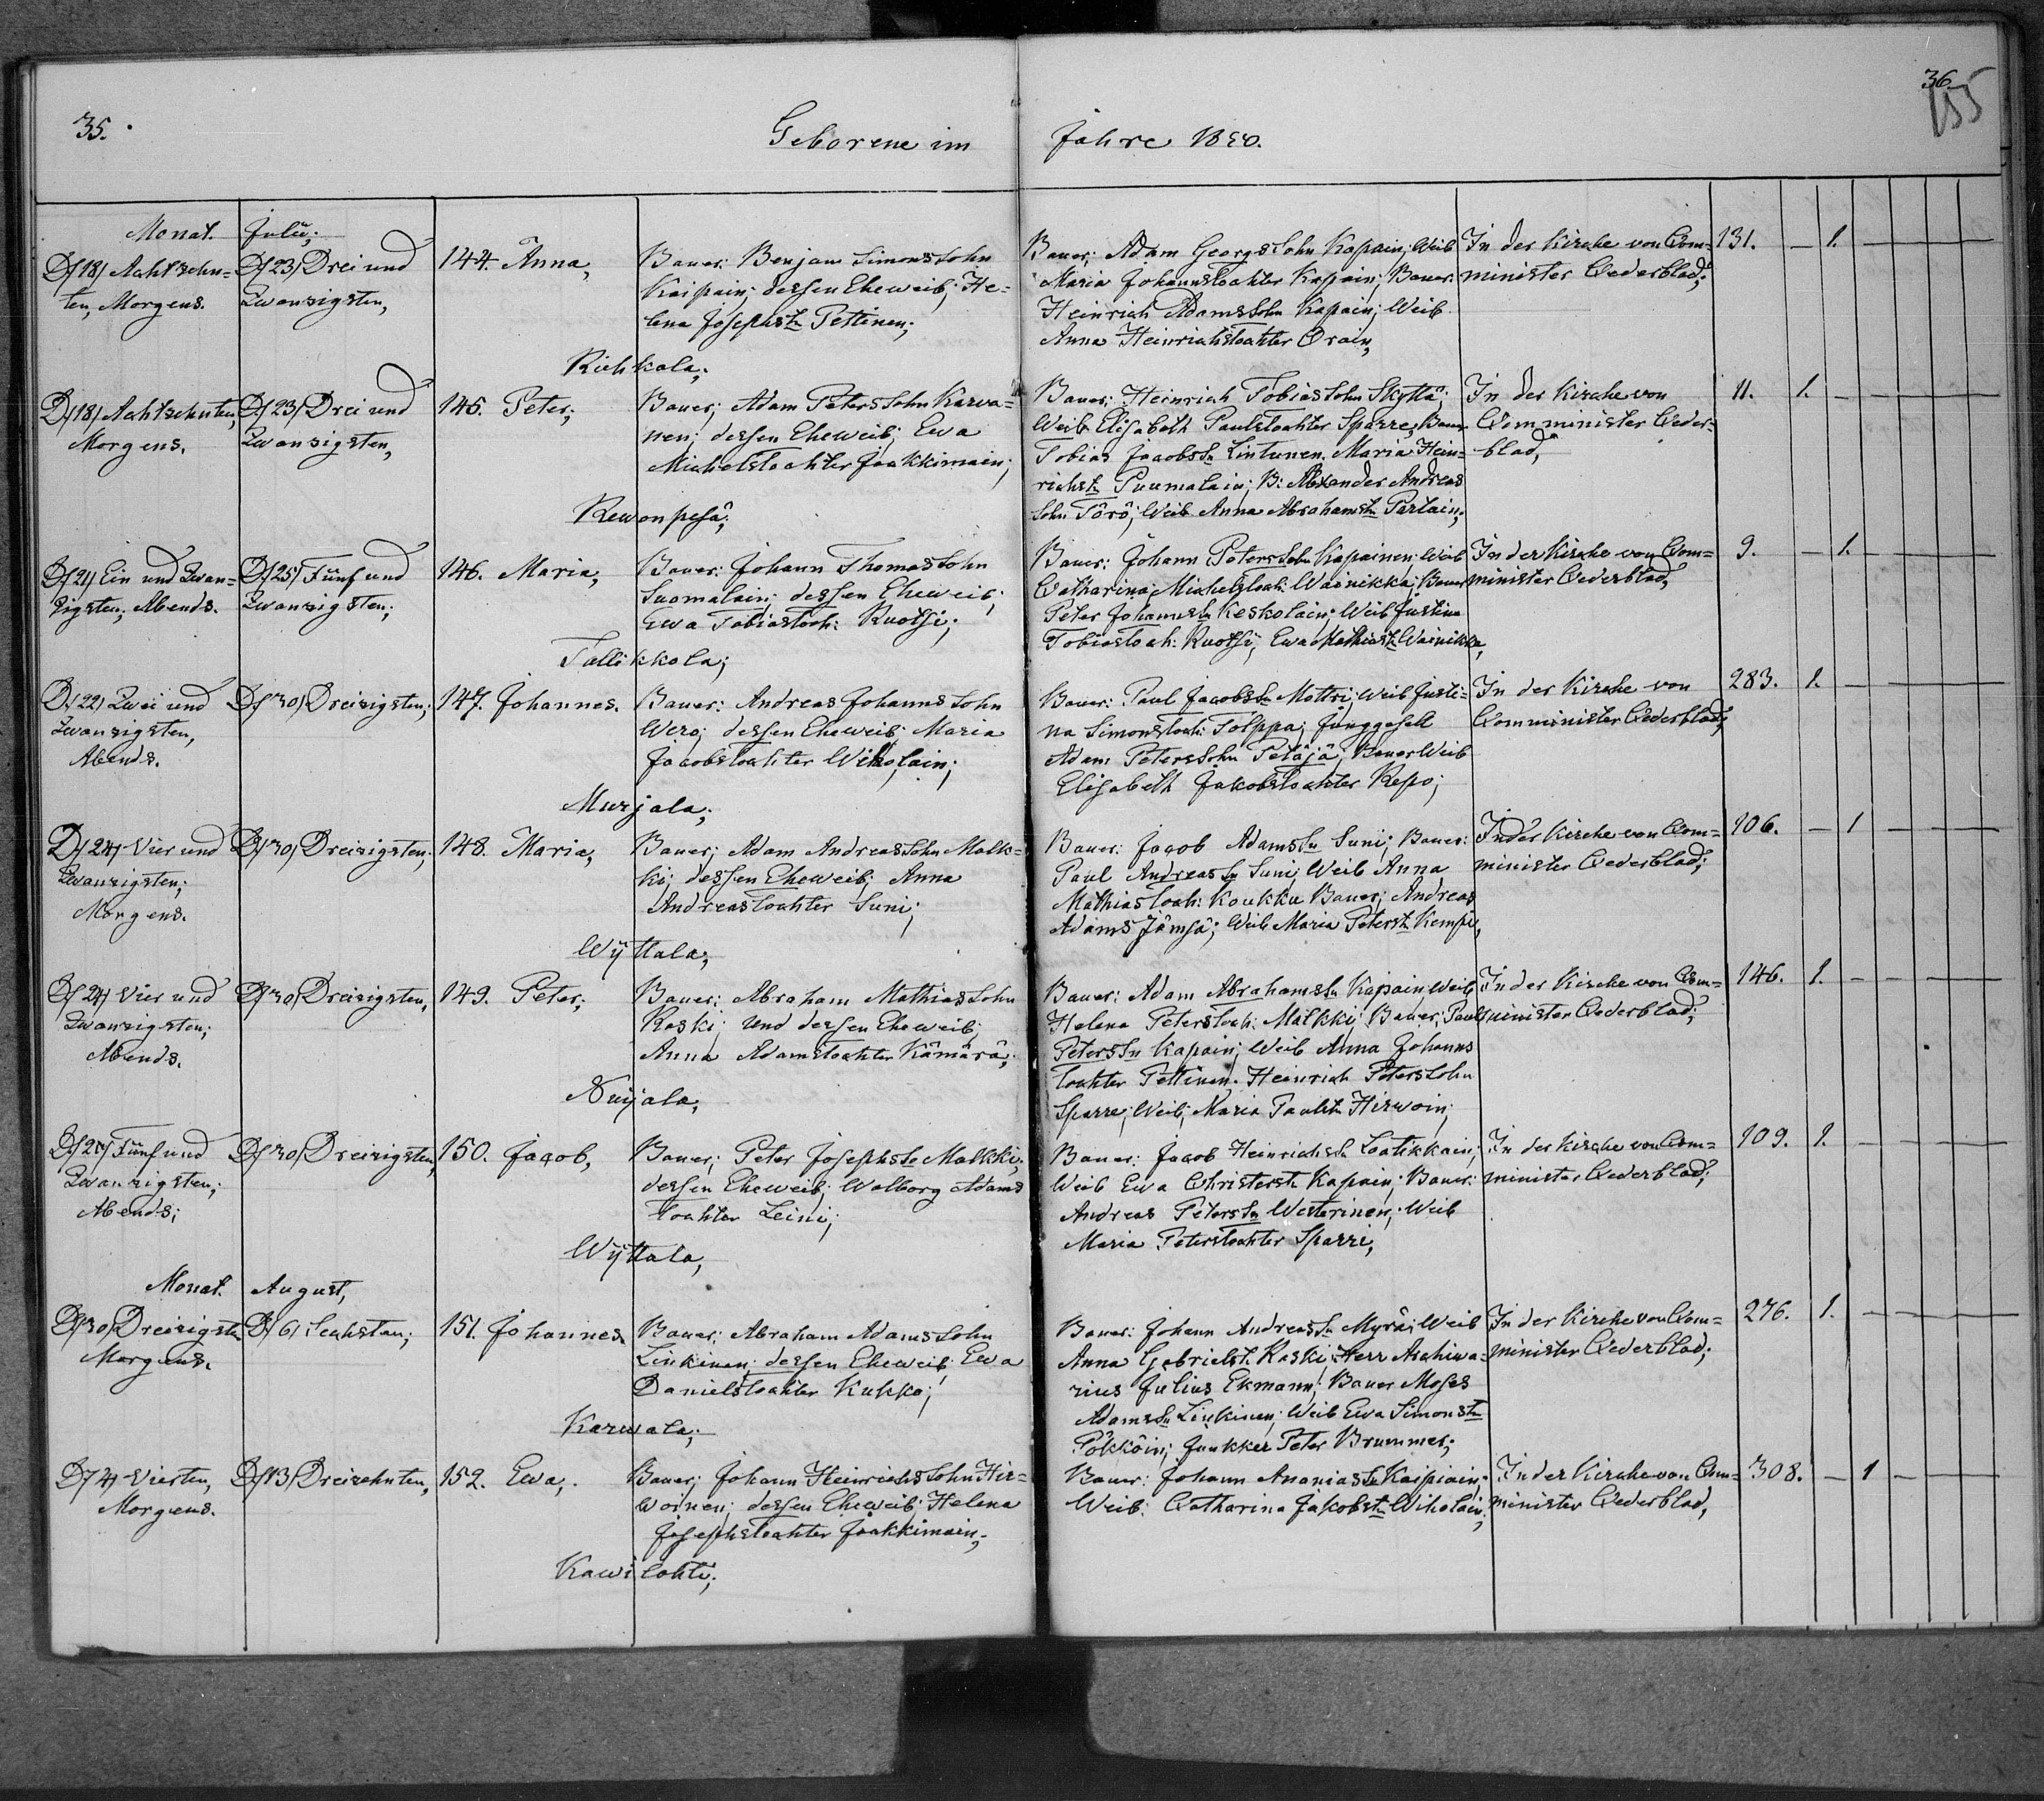 35.
36.
155
Geborene im Jahre 1850.
Monat. Julii;
D/18/ Achtzehn=
ten, Morgens.
D/23/ Drei und
Zwanzigsten,
144. Anna,
Bauer: Benjam Simonssohn
Kaipain; dessen Eheweib; He=
lena Josephst. Pettenen;
Richkala;
Bauer; Adam Georgssohn Kapain; Weib
Maria Johannstochter Kapain; Bauer
Heinrich Adamssohn Kapain; Weib
Anna Heinrichstochter Orain,
In der Kirche von Com=
minister Cederblad;
131. — 1. —
D/18/ Achtzehnten,
Morgens.
D/23/ Drei und
Zwanzigsten,
145. Peter;
Bauer; Adam Peterssohn Karva=
nen; dessen Eheweib; Ewa
Michelstochter Jaakkimain;
Rewonpesä;
Bauer: Heinrich Tobiassohn Skyttä;
Weib Elisabeth Paulstochter Sparre, Bauer
Tobias Jacobssn Lintunen. Maria Hein=
richst. Puumalain; B: Alexander Andreas
sohn Törö; Weib Anna Abrahamst. Partain;
In der Kirche von
Comminister Ceder=
blad,
11. 1. —
D/21/ Ein und Zwan=
zigsten; Abends.
D/25/ Fünf und
Zwanzigsten;
146. Maria,
Bauer: Johann Thomassohn
Suomalain; dessen Eheweib;
Ewa Tobiastoch: Ruotsi;
Tallikkola;
Bauer: Johann Peterssohn Kapainen; Weib
Catharina Michelstoch: Wainikka; Bauer
Peter Johannssn Keskolain; Weib Justina
Tobiastoch: Ruotsi; Ewa Mathiast. Wainikka,
In der Kirche von Com=
minister Cederblad,
9. — 1. —
D/22/ Zwei und
Zwanzigsten,
Abends.
D/30/ Dreizigsten;
147. Johannes.
Bauer: Andreas Johannssohn
Wero; dessen Eheweib; Maria
Jacobstochter Wiholain;
Murjala;
Bauer: Paul Jacobssn Mattri; Weib Justi=
na Simonstoch: Tolppa; Junggesell
Adam Peterssohn Petäjä; Bauer Weib
Elisabeth Jakobstochter Repo;
In der Kirche von
Comminister Cederblad;
283. 1. —
D/24/ Vier und
Zwanzigsten;
Morgens.
D/30/ Dreizigsten;
148. Maria,
Bauer; Adam Andreassohn Malk=
ki; dessen Eheweib; Anna
Andreastochter Suni;
Wyttala;
Bauer: Jacob Adamssn Suni; Bauer:
Paul Andreassn Suni; Weib Anna
Mathiastoch: Koukku Bauer; Andreas
Adams Jämsä; Weib Maria Peterst. Kempi,
In der Kirche von Com=
minister Cederblad;
106. — 1 —
D/24/ Vier und
Zwanzigsten;
Abends.
D/30/ Dreizigsten,
149. Peter;
Bauer; Abraham Mathiassohn
Raski; und dessen Eheweib;
Anna Adamstochter Kämärä;
Nuijala,
Bauer: Adam Abrahamssn Kapain; Weib
Helena Peterstoch: Malkki; Bauer; Paul
Peterssn Kapain; Weib Anna Johanns
tochter Pettinen. Heinrich Peterssohn
Sparre; Weib; Maria Paulst. Hirwoin;
In der Kirche von Com=
minister Cederblad;
146. 1. —
D/25/ Fünf und
Zwanzigsten;
Abends;
D/30/ Dreizigsten,
150. Jacob,
Bauer; Peter Josephssn Malkki;
dessen Eheweib; Walborg Adams
tochter Leini;
Wyttala,
Bauer: Jacob Heinrichssn Laatikkain;
Weib Ewa Christerst. Kapain; Bauer:
Andreas Peterssn Westerinen; Weib
Maria Peterstochter Sparri,
In der Kirche von Com=
minister Cederblad;
109. 1. —
Monat. August,
D/30/ Dreizigsten
Morgens.
D/6/ Sechsten;
151. Johannes
Bauer; Abraham Adamssohn
Liukinen; dessen Eheweib; Ewa
Danielstochter Kukko;
Karwala;
Bauer: Johann Andreassn Myrä; Weib
Anna Gabrielst. Raski; Herr Archiwa=
rius Julius Ekmann; Bauer Moses
Adamssn Liukinen; Weib Ewa Simonst.
Pökköin; Junkker Peter Brummer;
In der Kirche von Com=
minister Cederblad;
276. 1. —
D/4/ Vierten,
Morgens.
D/13/ Dreizehnten,
152. Ewa,
Bauer; Johann Heinrichssohn Hir=
woinen; dessen Eheweib; Helena
Josephstochter Jaakkimain;
Kawilohti;
Bauer: Johann Ananiassn Kaipiain;
Weib: Catharina Jakobst. Wiholain;
In der Kirche von Com=
minister Cederblad,
308. — 1 —